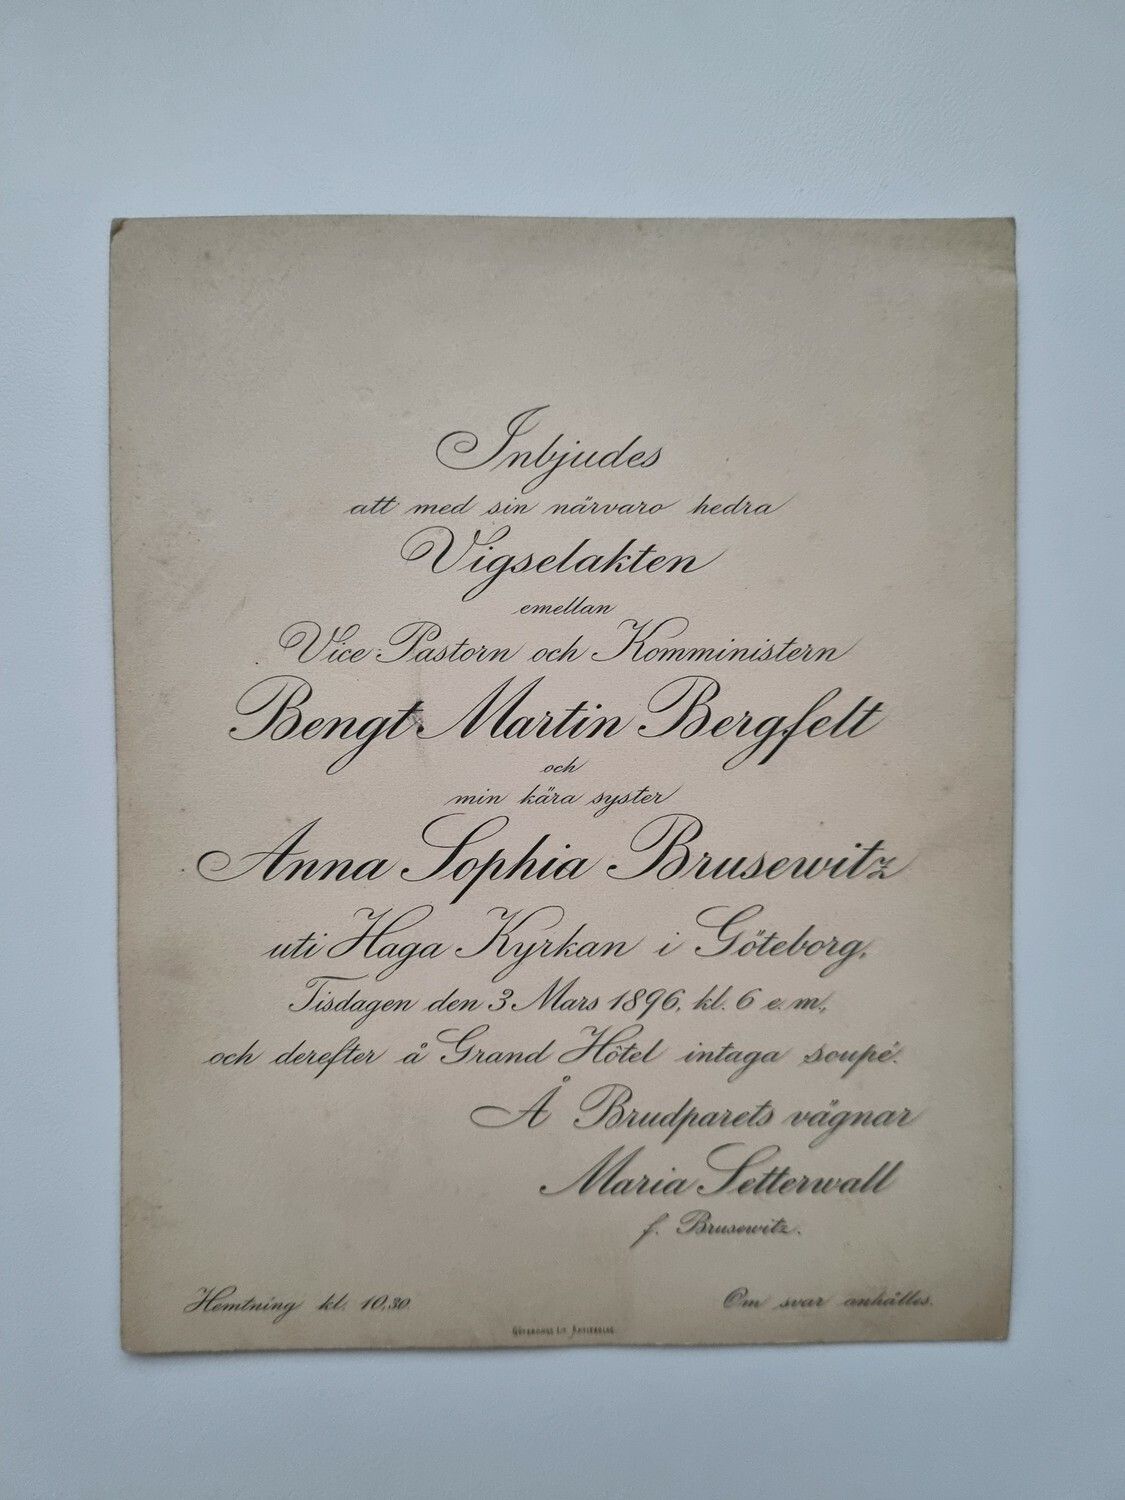 Inbjudes
att med sin närvaro hedra
Vigselakten
emellan
Vice Pastorn och Komministern
Bengt Martin Bergfelt
och
min kära syster
Anna Sophia Brusewitz
uti Haga Kyrkan i Göteborg,
Tisdagen den 3 Mars 1896, kl. 6 e. m.,
och derefter å Grand Hôtel intaga soupé.
Å Brudparets vägnar
Maria Setterwall
f. Brusewitz.
Hemtning kl. 10,30.
Om svar anhålles.
Göteborgs Lit. Aktiebolag.